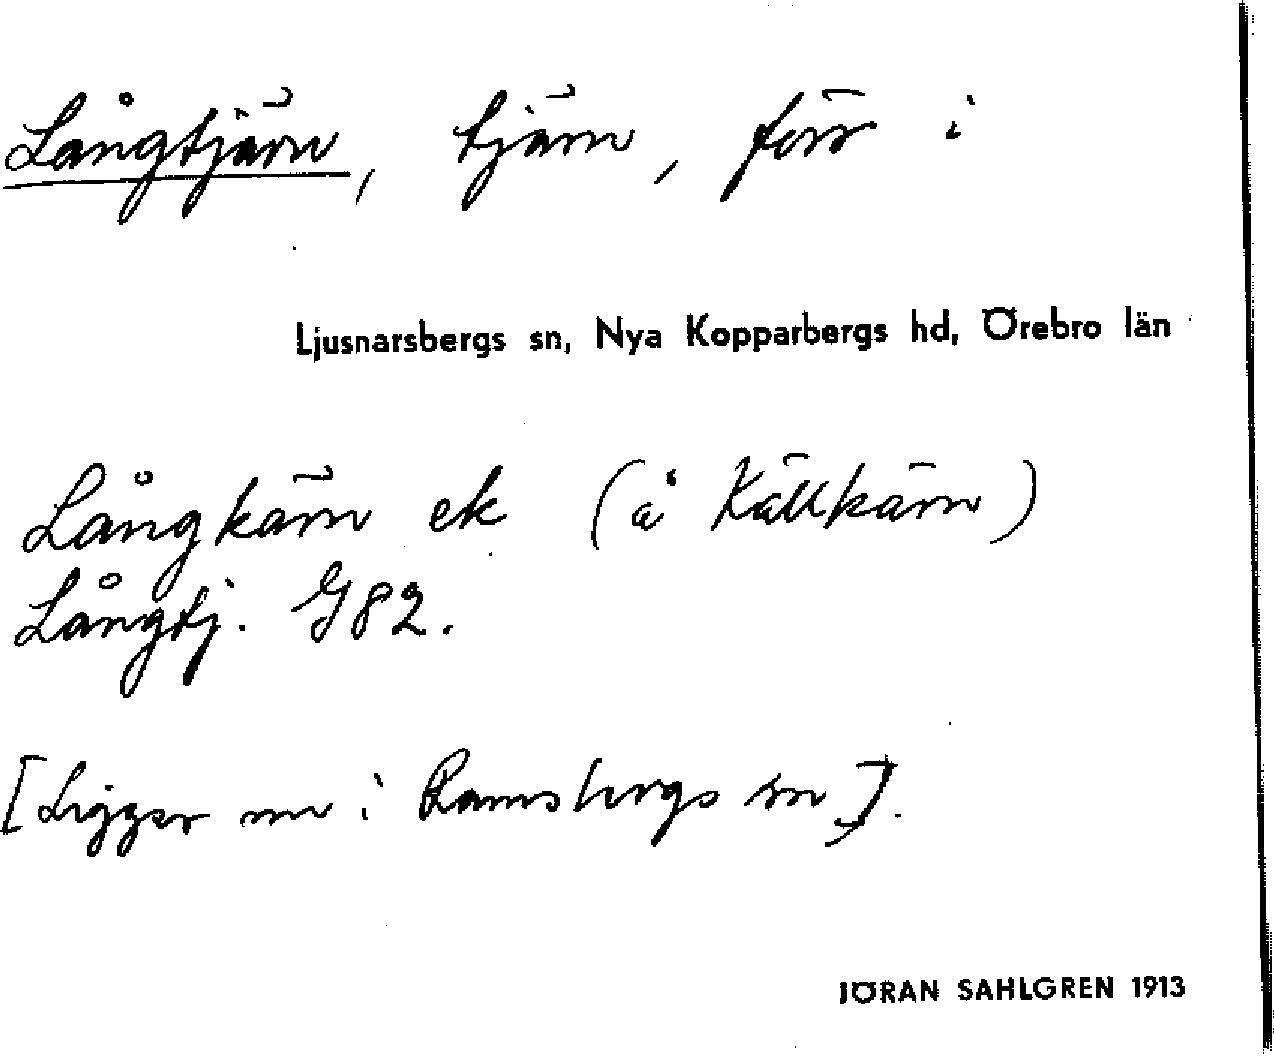 Långtjärn, tjärn, förr i
Ljusnarsbergs sn, Nya Kopparbergs hd, Örebro län
Långkärn ek (å Källkärn)
Långtj. G82.
[Ligger nu i Ramsbergs sn].
JÖRAN SAHLGREN 1913